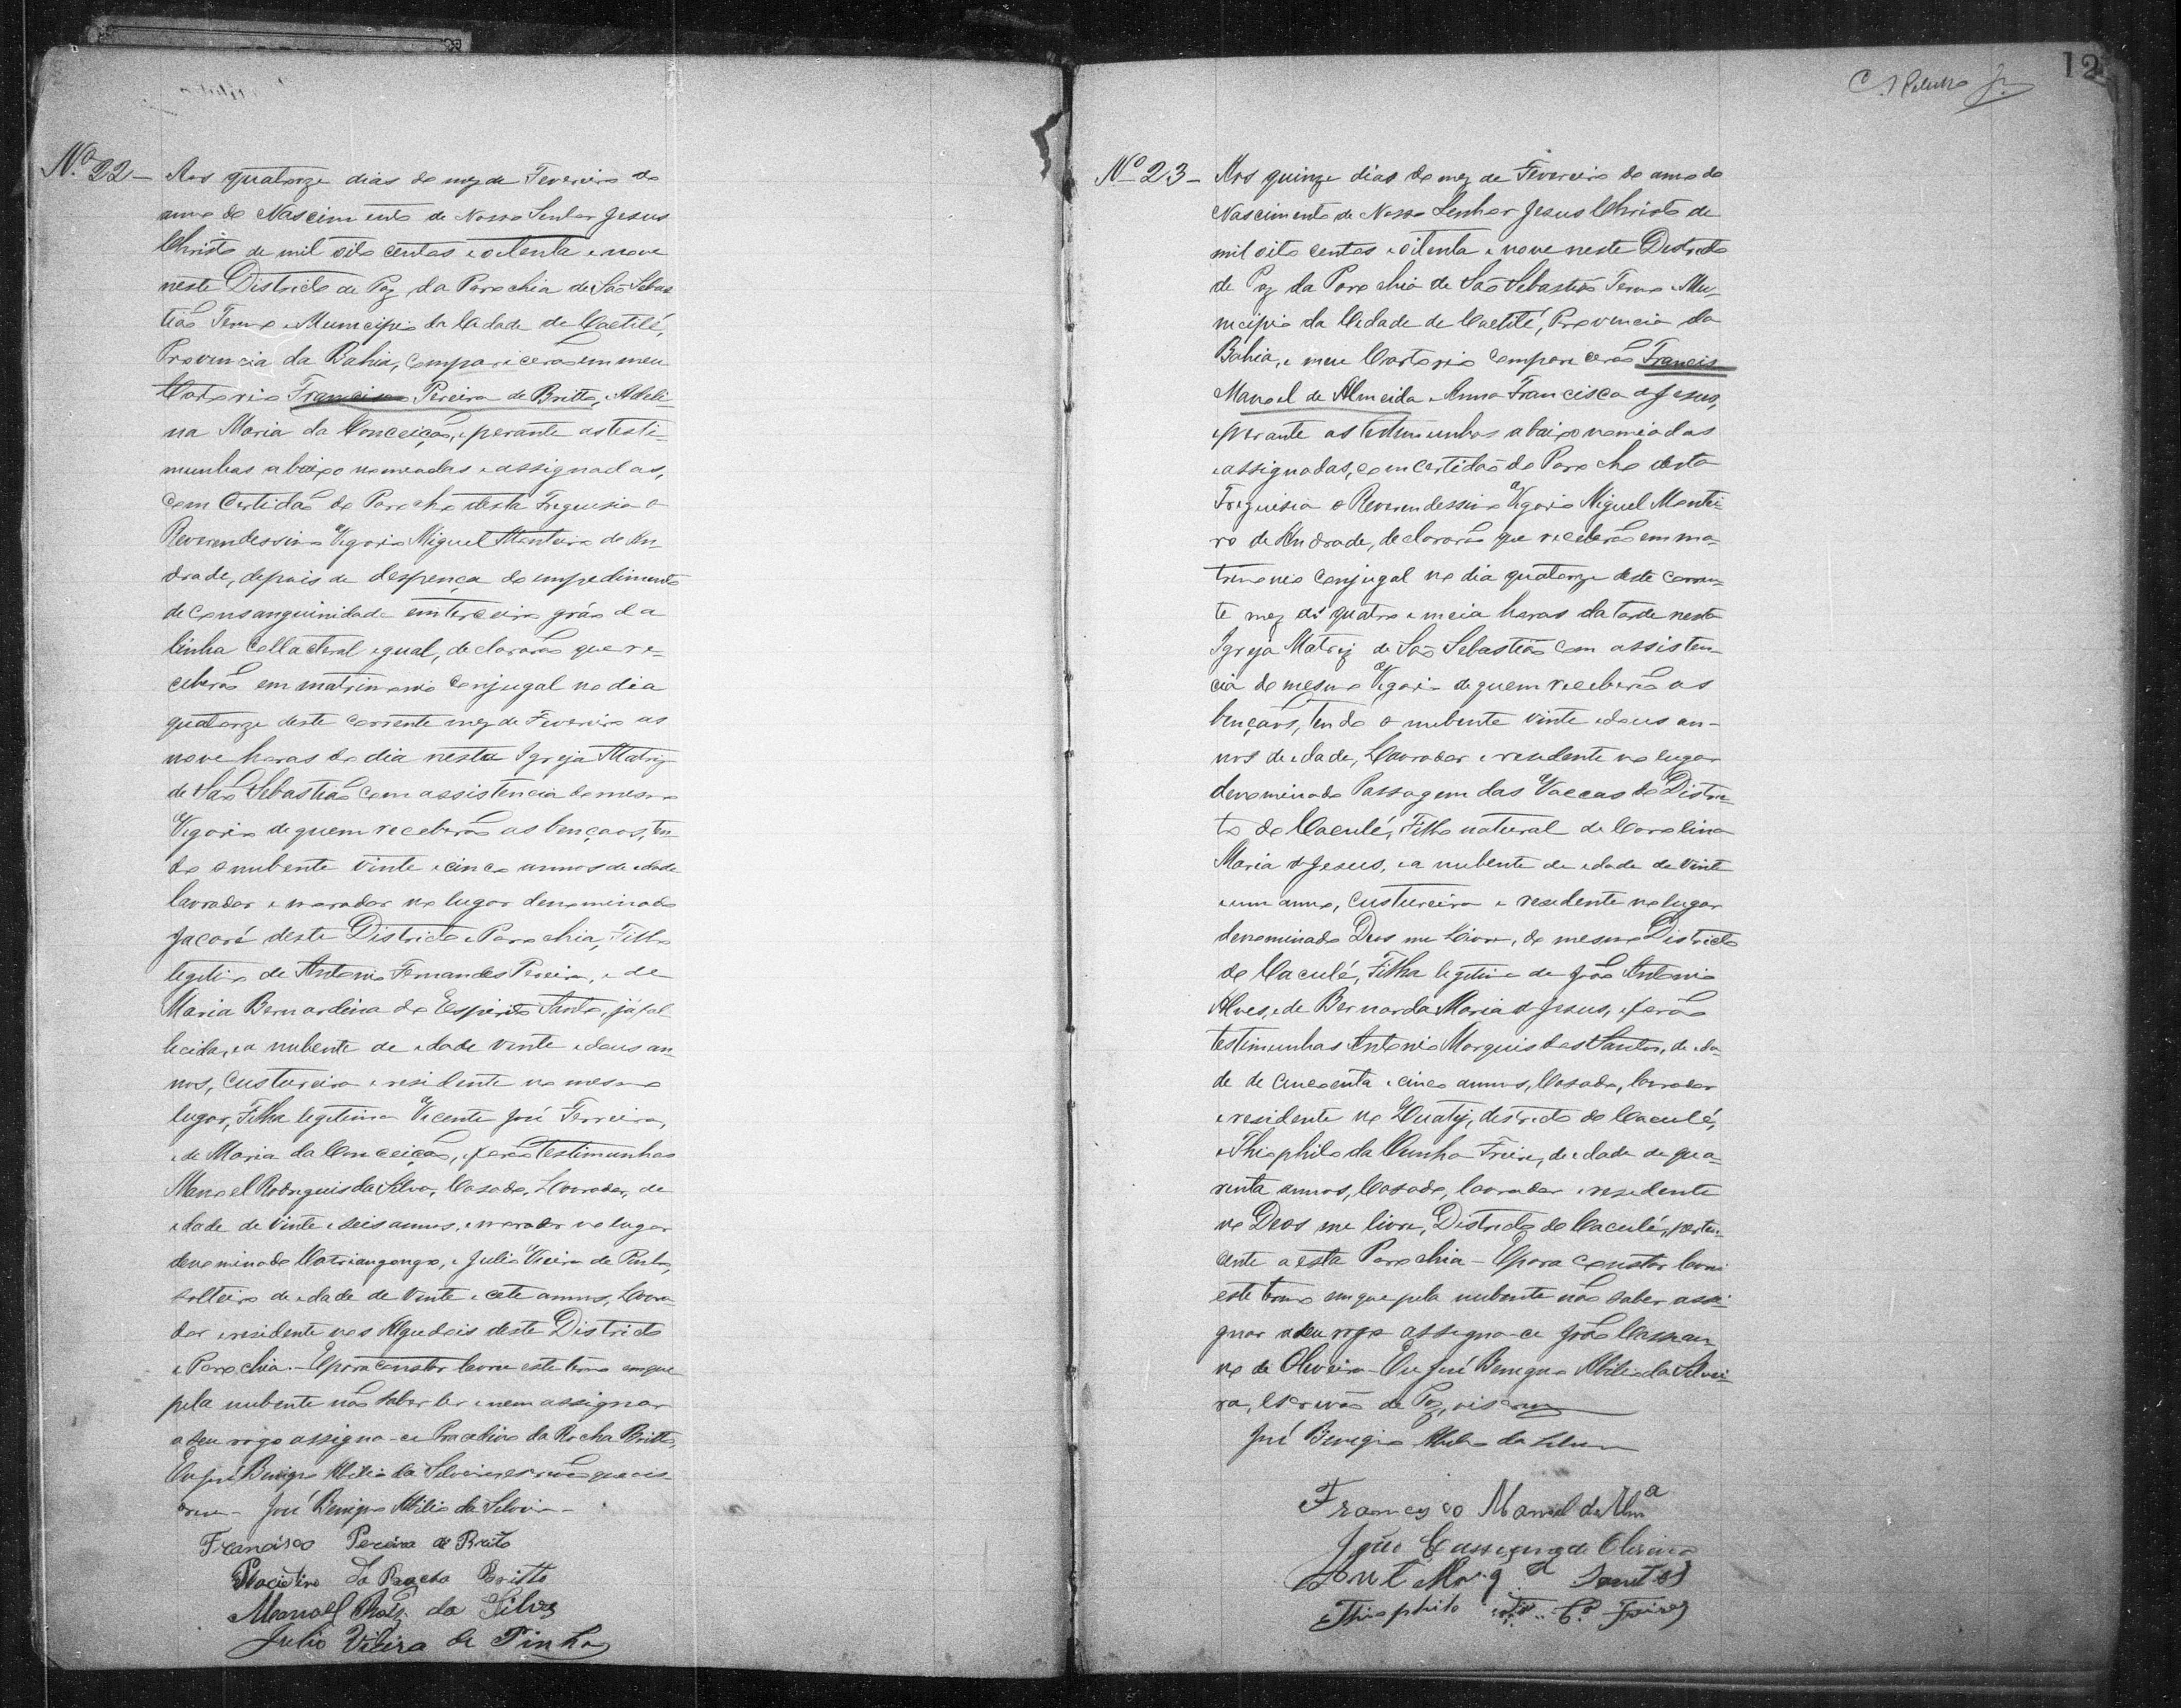 Nº 22 – Aos quatorze dias do mez de Fevereiro do
anno do Nascimento de Nosso Senhor Jesus
Christo de mil oito centos e oitenta e nove
neste Districto de Paz da Parochia de São Sebas
tião Termo e Municipio da Cidade de Caetité,
Provincia da Bahia, comparicerão em meu
Cartorio Francisco Pereira de Britto, e Adeli-
na Maria da Conceição, e perante as testi-
munhas abaixo nomeadas e assignadas,
com Certidão do Parocho desta Freguesia o
Reverendessimo Vigario Miguel Monteiro de An-
drade, depois de despença do empedimento
de consanguinidade em terceiro gráo da
linha Collacteral egual, declararão que re-
ceberão em matrimonio conjugal no dia
quatorze deste corrente mez de Fevereiro as
nove horas do dia nesta Igreja Matriz
de São Sebastião com assistencia do mesmo
Vigario de quem receberão as bençaos, ten
do o nubente vinte e cinco annos de edade
lavrador e morador no lugar denominado
Jacaré deste Districto e Parochia, Filho
legitimo de Antonio Fernandes Pereira, e de
Maria Bernardina do Espirito Santo, já fal-
lecida, e a nubente de edade vinte e dous an-
nos, custureira e residente no mesmo
lugar, Filha legitima Vicente José Ferreira,
e de Maria da Conceição, e farão testimunhas
Manoel Rodrigues da Silva, Casado, Lavrador, de
edade de vinte e seis annos, e morador no lugar
denominado e Julio Vieira de Pinho,
solteiro de edade de vinte e cete annos, Lavra-
dor e residente nos deste Districto
e Parochia. – E para constar lavrei este termo em que
pela nubente não saber ler e nem assignar
a seu rogo assigna-ce Placedino da Rocha Britto,
Eu José Benigno Abilio da Silveira escrivão que oes-
crevi – José Benigno Abilio da Silveira –
Francisco Pereira de Britto
Placidino da Rocha Britto
Manoel Roiz da Silva
Julio Vieira de Pinho
12
Nº 23 – Aos quinze dias do mez de Fevereiro do anno do
Nascimento de Nosso Senhor Jesus Christo de
mil oito centos e oitenta e nove neste Districto
de Paz da Parochia de São Sebastião Termo e Mu-
nicipio da Cidade de Caetité, Provincia da
Bahia, e meu Cartorio comparicerão Francisco
Manoel de Almeida e Anna Francisca de Jesus,
e perante as testimunhas abaixo nomeadas
e assignadas, com certidão do Parocho desta
Freguisia o Reverendessimo Vigario Miguel Montei-
ro de Andrade, declararão que receberão em ma-
trimonio Conjugal no dia quatorze deste corren-
te mez ás quatro e meia horas da tarde nesta
Igreja Matriz de São Sebastião com assisten-
cia do mesmo Vigario de quem receberão as
bençaos, tendo o nubente vinte e dous an-
nos de edade, Lavrador e residente no lugar
denominado Passagem das Vaccas do Distric-
to do Caculé, Filho natural de Carolina
Maria de Jesus, e a nubente de edade de vinte
e um anno, custureira e residente no lugar
denominado Deos me Livre, do mesmo Districto
do Caculé, Filha legitima de João Antonio
Alves, e de Bernarda Maria de Jesus, e farão
testimunhas Antonio Marques dos Santos, de eda-
de de cincoenta e cinco annos, Casado, lavrador
e residente no destricto do Caculé,
e Thiophilo da Cunha Freire, de edade de qua-
renta annos, Casado, lavrador e residente
no Deos me livre, Districto do Caculé, perten-
cente a esta Parochia – E para constar lavrei
este termo em que pela nubente não saber assi-
gnar a seu rogo assigna-ce João Cassian
no de Oliveira – Eu José Benigno Abilio da Silvei-
ra, escrivão de Paz, oiscrevy
José Benigno Abilio da Silveira
Francisco Manoel de Almª
João Cassiano de Oliveira
Ant Marq dos Santos
Thiophilo da Cª Freire